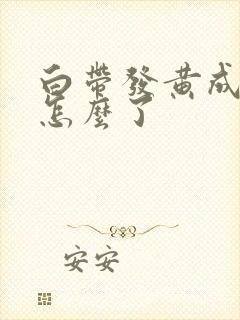 白帶發黄成
怎麼了
安安